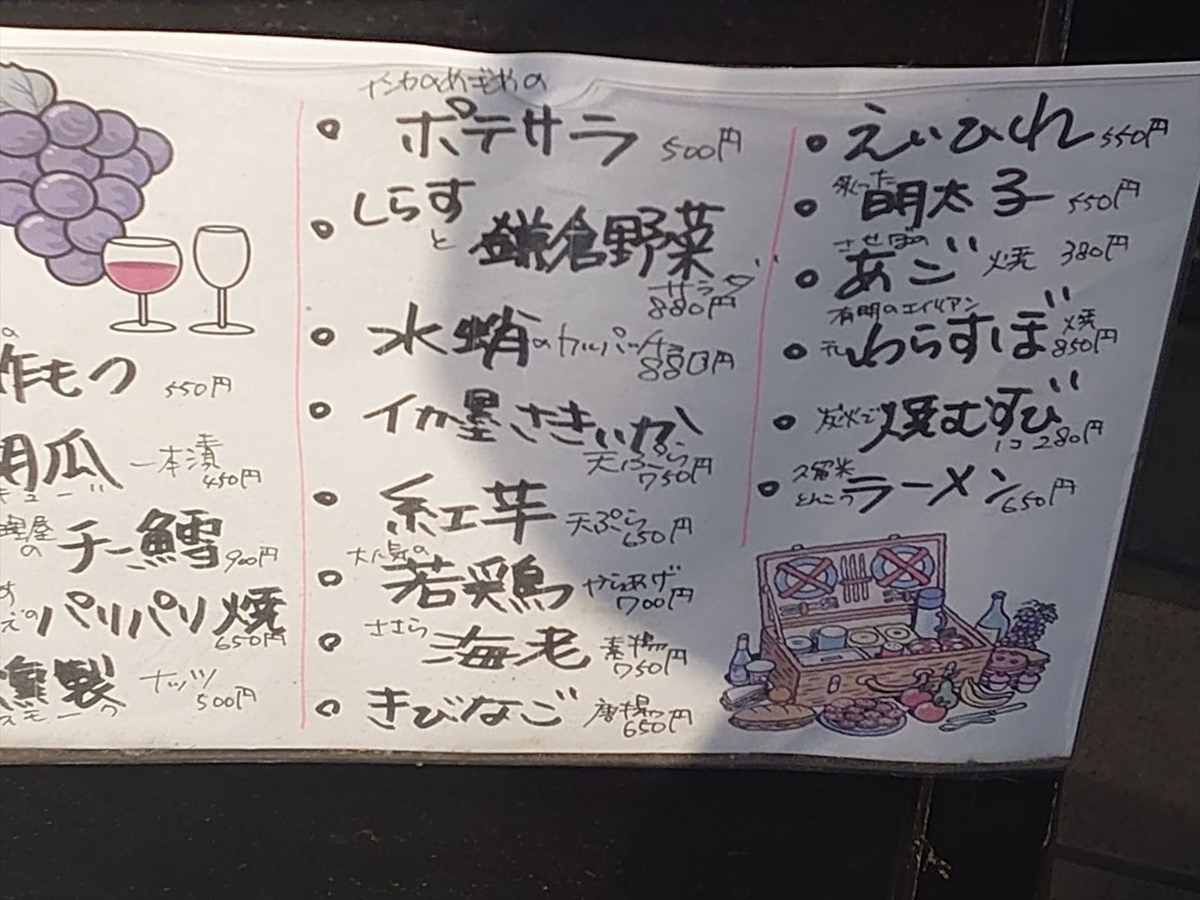 の
酢もつ 550円
胡瓜 一本漬 450円
キューリ
の チー鱈 900円
パリパリ焼 650円
燻製 ナッツ 500円
スモーク
ポテサラ 500円
しらすと鎌倉野菜サラダ 880円
水蛸のカルパッチョ 880円
イカ墨さきいか天ぷら 750円
紅芋天ぷら 650円
大人気の
若鶏からあげ 700円
海老素揚 750円
きびなご唐揚 650円
えいひれ 550円
炙った
明太子 550円
あご焼 380円
有明のエイリアン
わらすぼ焼 850円
炭火で焼むすび 1コ280円
久留米
とんこつ ラーメン 650円